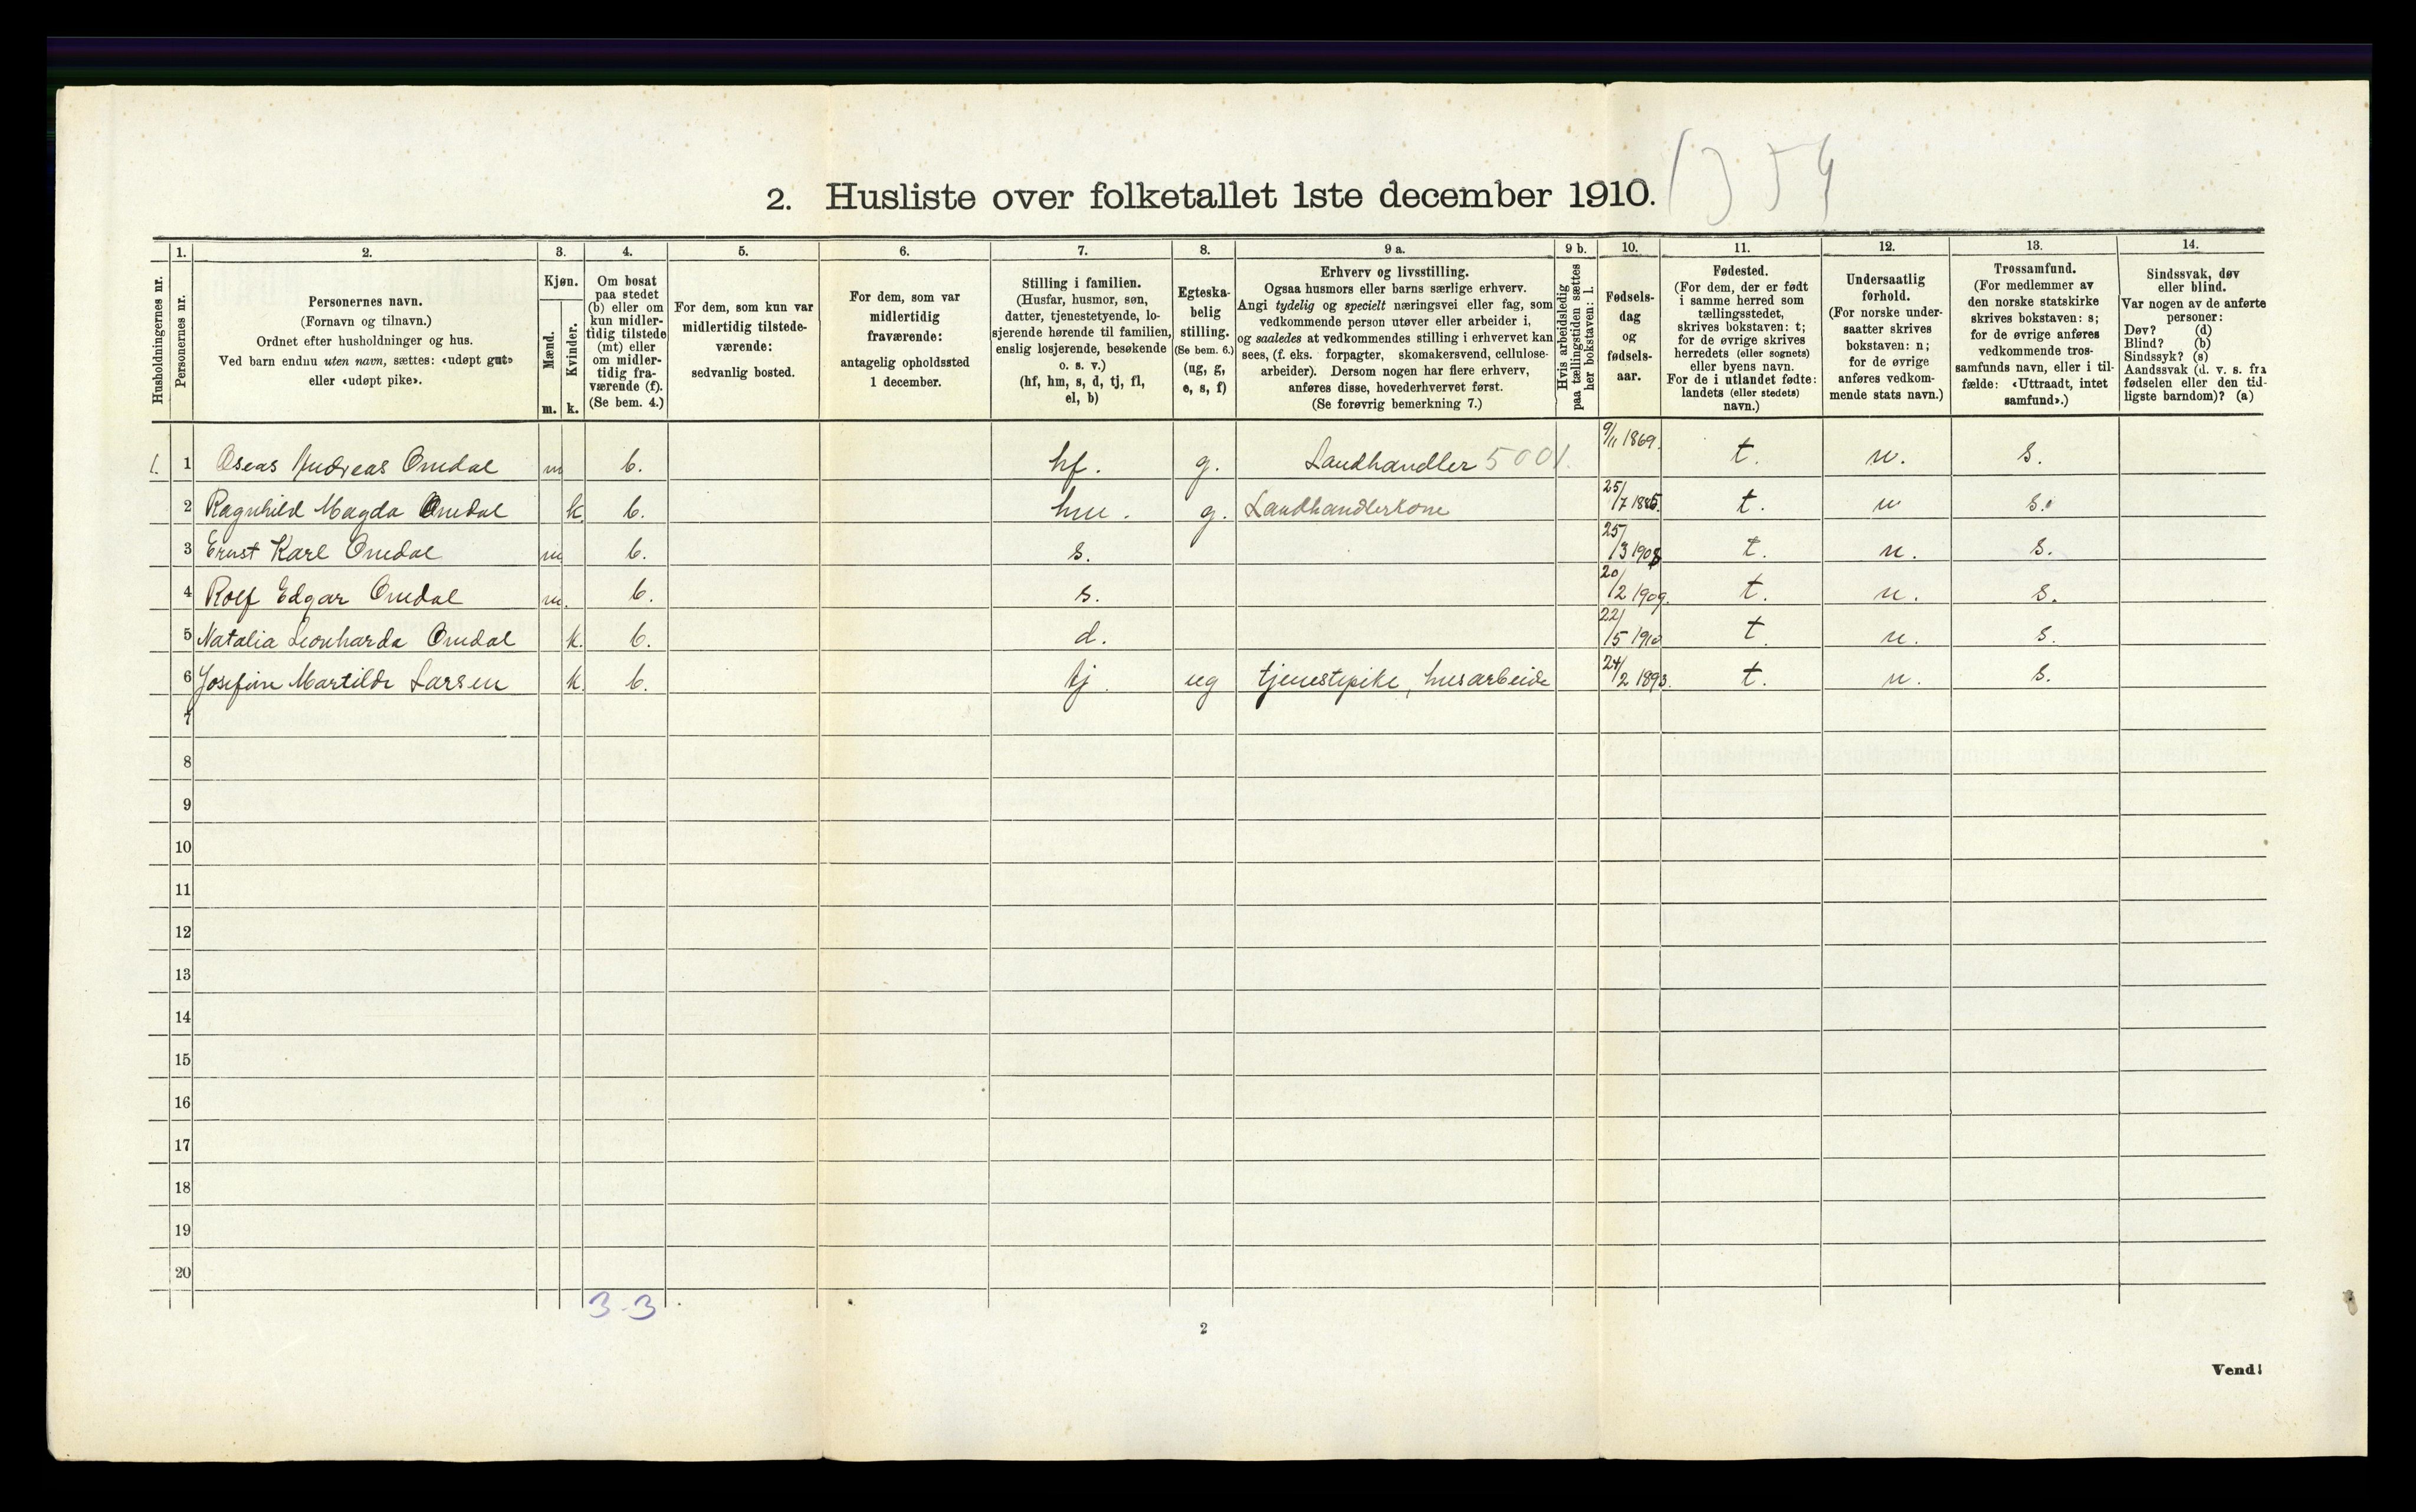 1354
2. Husliste over folketallet 1ste december 1910.
1. 2. 3. 4. 5. 6. 7. 8. 9 a. 9 b. 10. 11. 12. 13. 14.
Husholdningernes nr.
Personernes nr.
Personernes navn.
(Fornavn og tilnavn.)
Ordnet efter husholdninger og hus.
Ved barn endnu uten navn, sættes: «udøpt gut»
eller «udøpt pike».
Kjøn.
Mænd.
Kvinder.
m. k.
Om bosat
paa stedet
(b) eller om
kun midler-
tidig tilstede
(mt) eller
om midler-
tidig fra-
værende (f).
(Se bem. 4.)
For dem, som kun var
midlertidig tilstede-
værende:
sedvanlig bosted.
For dem, som var
midlertidig
fraværende:
antagelig opholdssted
1 december.
Stilling i familien.
(Husfar, husmor, søn,
datter, tjenestetyende, lo-
sjerende hørende til familien,
enslig losjerende, besøkende
o. s. v.)
(hf, hm, s, d, tj, fl,
el, b)
Egteska-
belig
stilling.
(Se bem. 6.)
(ug, g,
e, s, f)
Erhverv og livsstilling.
Ogsaa husmors eller barns særlige erhverv.
Angi tydelig og specielt næringsvei eller fag, som
vedkommende person utøver eller arbeider i,
og saaledes at vedkommendes stilling i erhvervet kan
sees, (f. eks. forpagter, skomakersvend, cellulose-
arbeider). Dersom nogen har flere erhverv,
anføres disse, hovederhvervet først.
(Se forøvrig bemerkning 7.)
Hvis arbeidsledig
paa tællingstiden sættes
her bokstaven: l.
Fødsels-
dag
og
fødsels-
aar.
Fødested.
(For dem, der er født
i samme herred som
tællingsstedet,
skrives bokstaven: t;
for de øvrige skrives
herredets (eller sognets)
eller byens navn.
For de i utlandet fødte:
landets (eller stedets)
navn.)
Undersaatlig
forhold.
(For norske under-
saatter skrives
bokstaven: n;
for de øvrige
anføres vedkom-
mende stats navn.)
Trossamfund.
(For medlemmer av
den norske statskirke
skrives bokstaven: s;
for de øvrige anføres
vedkommende tros-
samfunds navn, eller i til-
fælde: «Uttraadt, intet
samfund».)
Sindssvak, døv
eller blind.
Var nogen av de anførte
personer:
Døv? (d)
Blind? (b)
Sindssyk? (s)
Aandssvak (d. v. s. fra
fødselen eller den tid-
ligste barndom)? (a)
1. 1 Oseas Andreas Omdal m b. hf. g. Landhandler 5001. 9/11 1869. t. n. s.
2 Ragnhild Magda Omdal k b. hm. g. Landhandlerkone 25/7 1885. t. n s.
3 Ernst Karl Omdal m b. s. 25/3 1908 t. n. s.
4 Rolf Edgar Omdal m. b. s. 20/2 1909. t. n. s.
5 Natalia Leonharda Omdal k. b. d. 22/5 1910 t. n. s.
6 Josefine Martilde Larsen k. b. tj. ug tjenestepike, husarbeide 24/2 1893. t. n. s.
7
8
9
10
11
12
13
14
15
16
17
18
19
20
3-3
2
Vend!